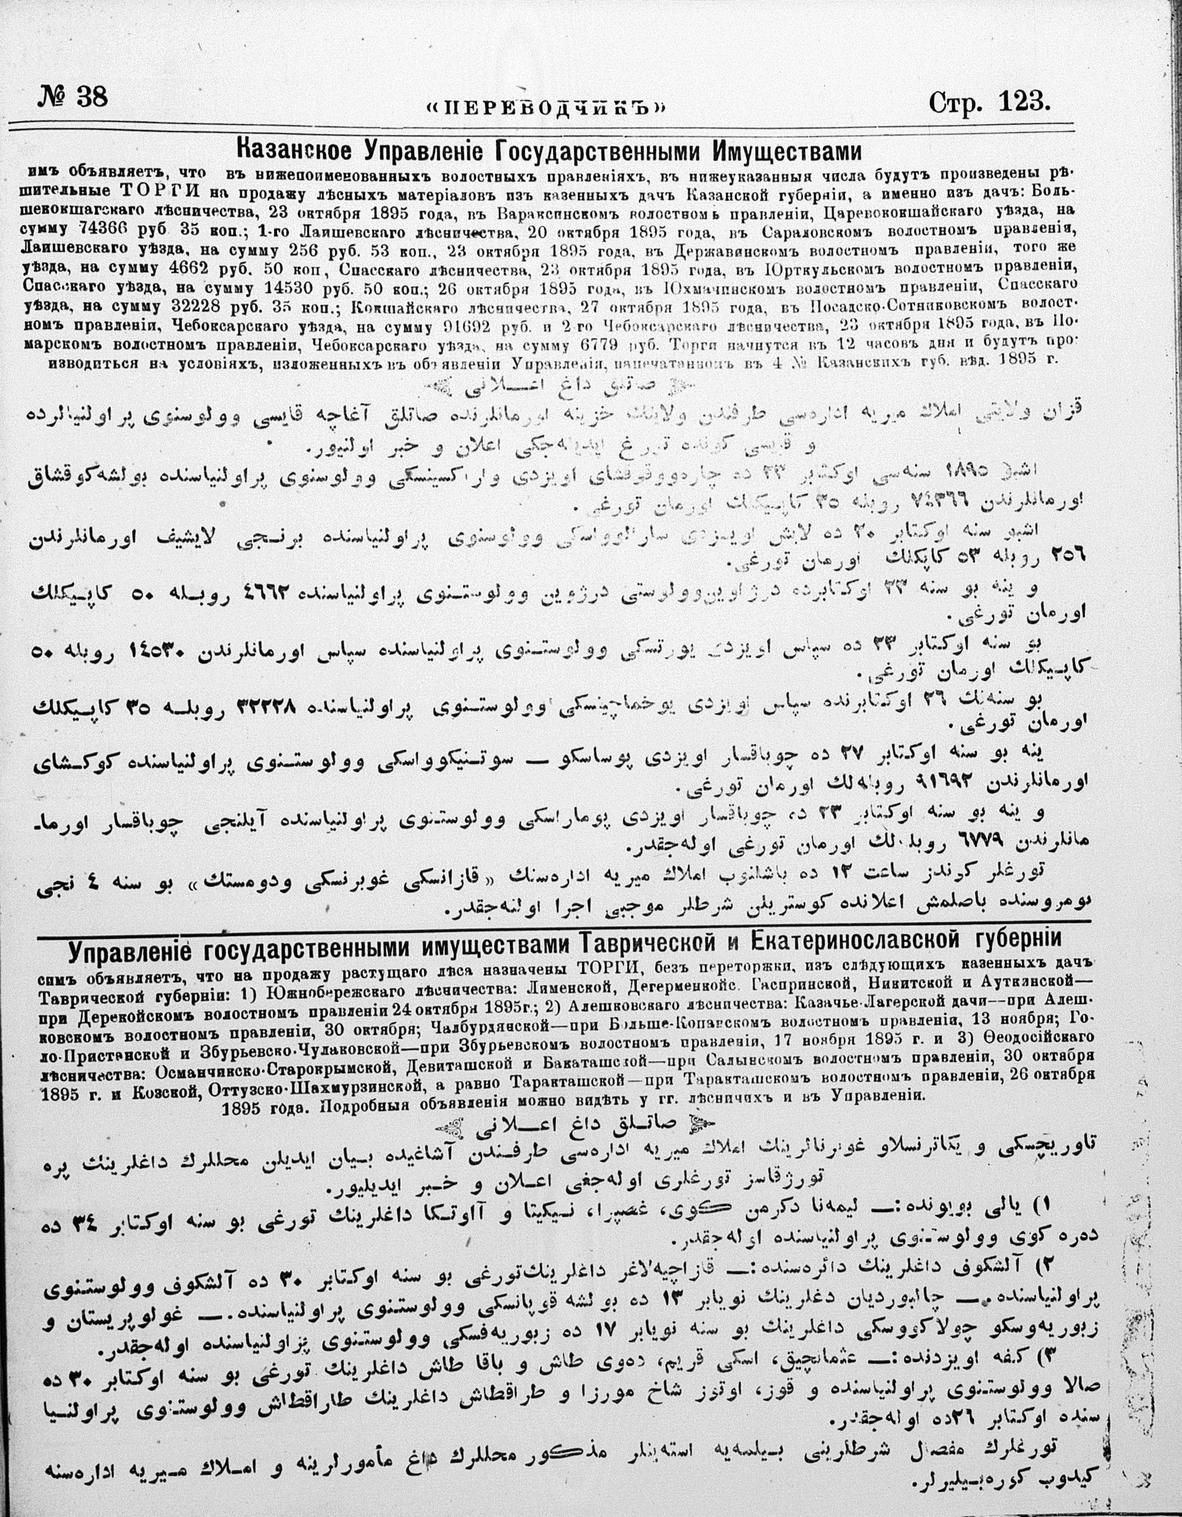 № 38
«ПЕРЕВОДЧИКЪ»
Стр. 123.
Казанское Управленіе Государственными Имуществами
имъ объявляетъ, что въ нижепоименованныхъ волостныхъ правленіяхъ, въ нижеуказанныя числа будутъ произведены рѣ-
шительные ТОРГИ на продажу лѣсныхъ матеріаловъ изъ казенныхъ дачъ Казанской губерніи, а именно изъ дачъ: Боль-
шекокшагскаго лѣсничества, 23 октября 1895 года, въ Вараксинскомъ волостномъ правленіи, Царевококшайскаго уѣзда, на
сумму 74366 руб. 35 коп.; 1-го Лаишевскаго лѣсничества, 20 октября 1895 года, въ Сараловскомъ волостномъ правленіи,
Лаишевскаго уѣзда, на сумму 256 руб. 53 коп., 23 октября 1895 года, въ Державинскомъ волостномъ правленіи, того же
уѣзда, на сумму 4662 руб. 50 коп, Спасскаго лѣсничества, 23 октября 1895 года, въ Юрткульскомъ волостномъ правленіи,
Спасскаго уѣзда, на сумму 14530 руб. 50 коп.; 26 октября 1895 года, въ Юхмачинскомъ волостномъ правленіи, Спасскаго
уѣзда, на сумму 32228 руб. 35 коп.; Кокшайскаго лѣсничества, 27 октября 1895 года, въ Посадско-Сотниковскомъ волост-
номъ правленіи, Чебоксарскаго уѣзда, на сумму 91692 руб. и 2-го Чебоксарскаго лѣсничества, 23 октября 1895 года, въ По-
марскомъ волостномъ правленіи, Чебоксарскаго уѣзда, на сумму 6779 руб. Торги начнутся въ 12 часовъ дня и будутъ про-
изводиться на условіяхъ, изложенныхъ въ объявленіи Управленія, напечатанномъ въ 4 № Казанскихъ губ. вѣд. 1895 г.
صاتلق داغ اعـــلانی
قزان ولایتی املاك میریه اداره‌سی طرفندن ولایتك خزینه اورمانلرنده صاتلق آغاچه قایسی وولوستنوی پراولنیالرده
و قایسی كونده تورغ ایدیله‌جكی اعلان و خبر اولنیور.
اشبو ١٨٩٥ سنه‌سی اوكتابر ٢٣ ده چاره‌ووقوقشای اویزدی واراكسینسكی وولوستنوی پراولنیاسنده بولشه‌كوقشاق
اورمانلرندن ٧٤٣٦٦ روبله ٣٥ كاپیكلك اورمان تورغی.
اشبو سنه اوكتابر ٢٠ ده لایش اویـزدی سارالوواسكی وولوستنوی پراولنیاسنده برنـجی لایشیف اورمانلرندن
٢٥٦ روبله ٥٣ كاپكلك اورمان تورغی.
و ینه بو سنه ٢٣ اوكتابرده درژاوین‌وولوستی درژوین وولوستـنوی پراولنیاسنده ٤٦٦٢ روبـله ٥٠ كاپـیكلك
اورمان تورغی.
بو سنه اوكتابر ٢٣ ده سپاس اویزدی یورتسكی وولوستـنوی پراولنیاسنده سپاس اورمانلرندن ١٤٥٣٠ روبله ٥٠
كاپـیكلك اورمان تورغی.
بو سنه‌نك ٢٦ اوكتابرنده سپاس اویزدی یوخماچینسكی وولوستـنوی پراولنیاسنده ٣٢٢٢٨ روبلـه ٣٥ كاپـیكلك
اورمان تورغی.
ینه بو سنه اوكتابر ٢٧ ده چوباقسار اویزدی پوساسكو ــ سوتـنیكوواسكی وولوستـنوی پراولنیاسنده كوكـشای
اورمانلرندن ٩١٦٩٢ روبله‌لك اورمان تورغی.
و ینه بو سنه اوكتابر ٢٣ ده چوباقسار اویزدی پوماراسكی وولوستـنوی پراولنیاسنده آیلنجی چوباقسار اورمـا‌ـ
مانلرندن ٦٧٧٩ روبله‌لك اورمان تورغی اوله‌جقدر.
تورغلر كوندز ساعت ١٢ ده باشلنوب املاك میریه اداره‌سنك «قازانسكی غوبرنسكی ودومستك» بو سنه ٤ نجی
نومروسنده باصلمش اعلانده كوستریلن شرطلر موجبی اجرا اولنه‌جقدر.
Управленіе государственными имуществами Таврической и Екатеринославской губерніи
симъ объявляетъ, что на продажу растущаго лѣса назначены ТОРГИ, безъ переторжки, изъ слѣдующихъ казенныхъ дачъ
Таврической губерніи: 1) Южнобережскаго лѣсничества: Лименской, Дегерменкойс. Гаспринской, Никитской и Ауткинской—
при Дерекойскомъ волостномъ правленіи 24 октября 1895г.; 2) Алешковскаго лѣсничества: Казачье-Лагерской дачи—при Алеш-
ковскомъ волостномъ правленіи, 30 октября; Чалбурдянской—при Больше-Копанскомъ волостномъ правленіи, 13 ноября; Го-
ло-Пристанской и Збурьевско-Чулаковской—при Збурьевскомъ волостномъ правленіи, 17 ноября 1895 г. и 3) Ѳеодосійскаго
лѣсничества: Османчикско-Старокрымской, Девиташской и Бакаташской—при Салынскомъ волостномъ правленіи, 30 октября
1895 г. и Козской, Оттузско-Шахмурзинской, а равно Таракташской—при Таракташскомъ волостномъ правленіи, 26 октября
1895 года. Подробныя объявленія можно видѣть у гг. лѣсничихъ и въ Управленіи.
صاتـلق داغ اعـــلانی
تاوریچسكی و یكاترنسلاو غوبرنالرینك املاك میریه اداره‌سی طرفـندن آشاغیده بـیان ایدیلن محللرك داغلرینك پره
تورژقاسز تورغلری اوله‌جغی اعـلان و خـبر ایدیلیور.
١) یالی بویونده:ــ لیمه‌نا دكرمن كوی، غصپرا، نـیكیتا و آاوتـكا داغلرینك تورغی بو سنه اوكتابر ٢٤ ده
دره كوی وولوستـنوی پراولنیاسنده اوله‌جقدر.
٢) آلشكوف داغلرینك دائره‌سنده:ــ قازاچیه‌لاغر داغلرینك‌تورغی بو سنه اوكتابر ٣٠ ده آلشكوف وولوستـنوی
پراولنیاسنده.ــ چالبوردیان دغلرینك نویابر ١٣ ده بولشه قوپانسكی وولوستنوی پراولنیاسنده.ــ غولوپریستان و
زبوریه‌وسكو چولاكووسكی داغلرینك بو سنه نویابر ١٧ ده زبوریه‌فسكی وولوستـنوی پراولنیاسنده اوله‌جقدر.
٣) كفه اویزدنده:ــ عثمانچیق، اسكی قریم، ده‌وی طاش و باقا طاش داغلرینك تورغی بو سنه اوكتابر ٣٠ ده
صالا وولوستـنوی پراولنیاسنده و قوز، اوتوز شاخ مورزا و طراقطاش داغلرینك طاراقطاش وولوستـنوی پراولنـیا
سنده اوكتابر ٢٦ده اوله‌جقدر.
تورغلرك مفصل شرطلرینی بـیلمه‌یه استه‌ینلر مذكور محللرك داغ مأمورلرینه و امـلاك مـیریه اداره‌سنه
كیدوب كوره‌بـیلیرلر.